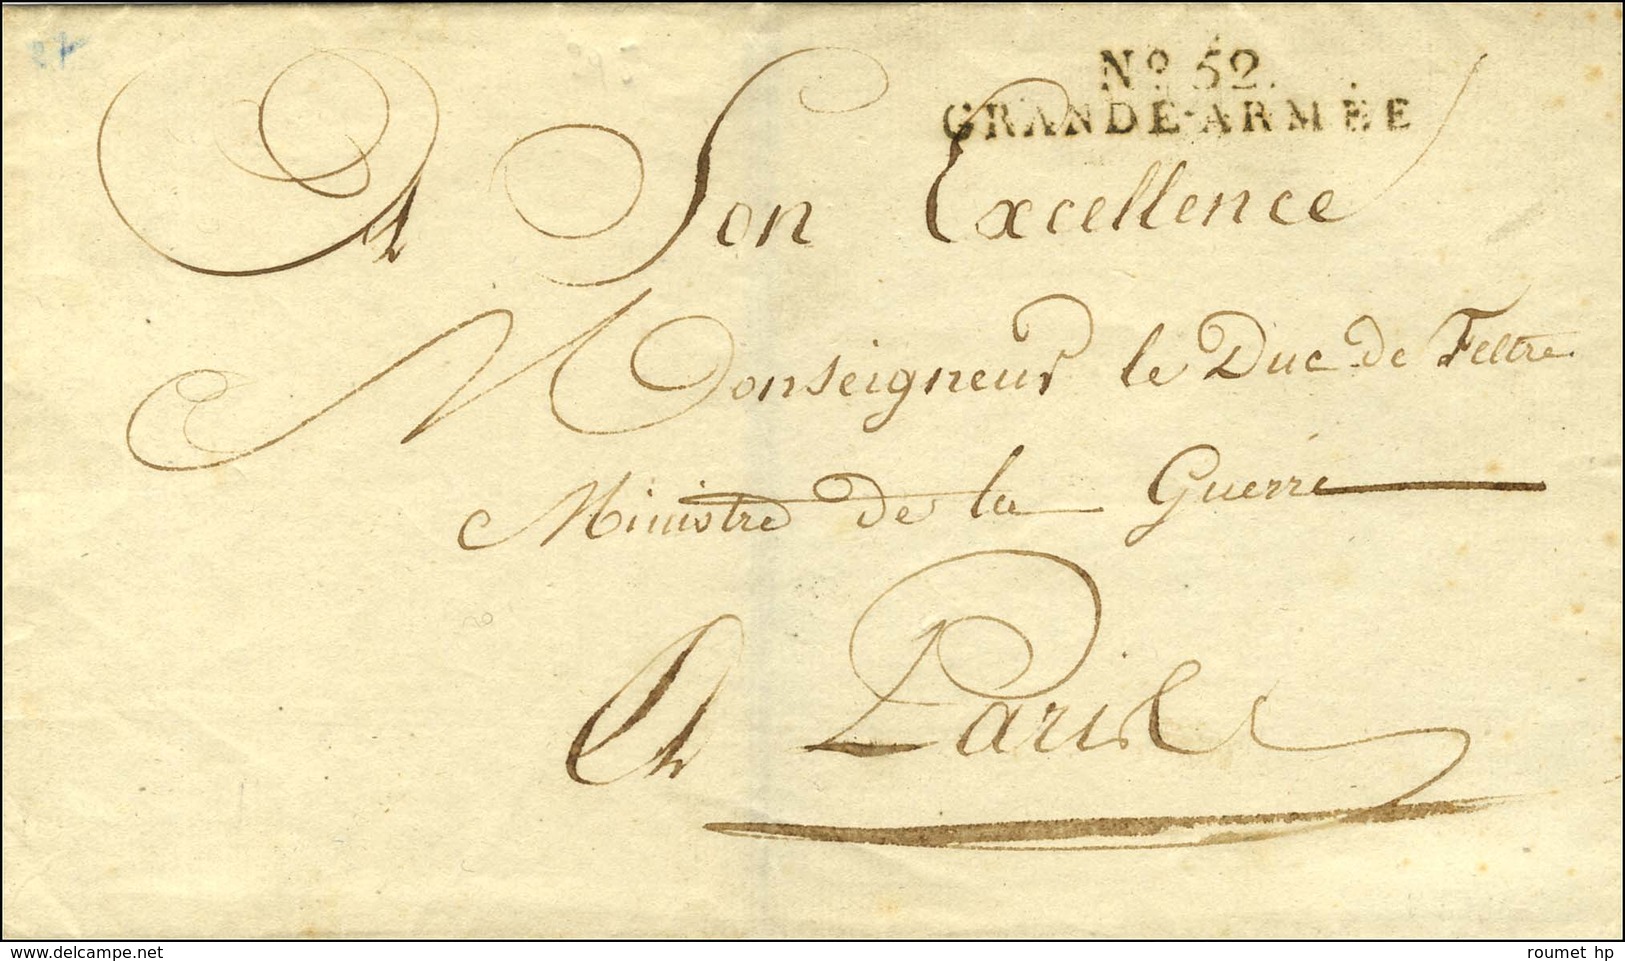 27
N° 52.
GRANDE-ARMÉE
A Son Excellence
Monseigneur le Duc de Feltre
Ministre de la Guerre
A Paris
delcampe.net
roumet hp